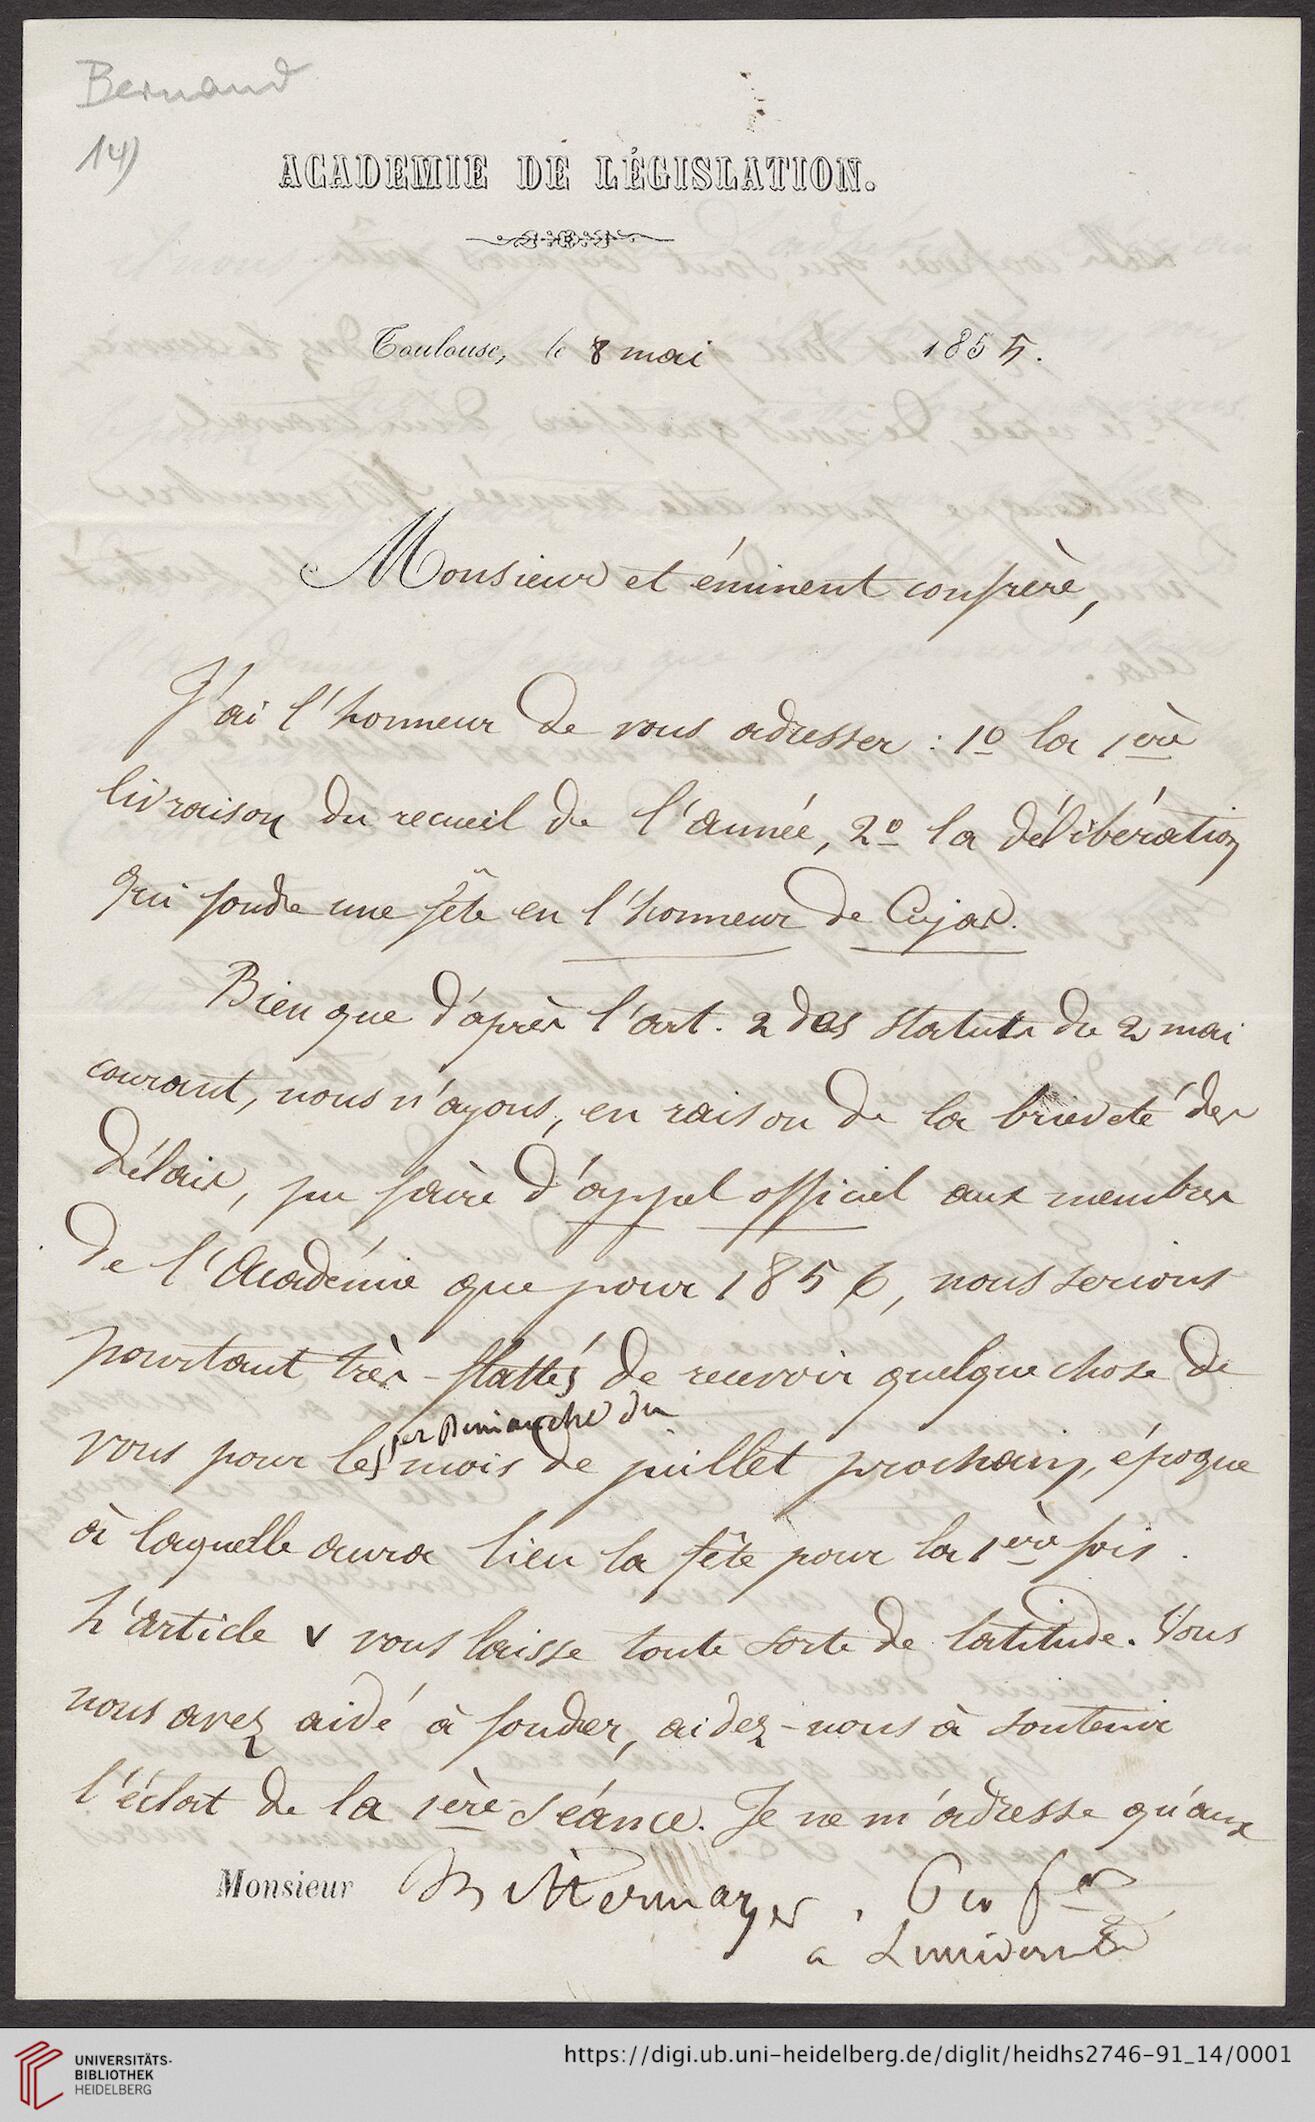 Bernard
14)
ACADÉMIE DE LÉGISLATION.
Toulouse, le 8 mai 1855.
Monsieur et éminent confrère,
J'ai l'honneur de vous adresser : 1º la 1ère
livraison du recueil de l'année, 2º la délibération
qui fonde une fête en l'honneur de Cujas.
Bien que d'après l'art. 2 des statuts du 2 mai
courant, nous n'ayons, en raison de la brièveté des
délais, pu faire d'appel officiel aux membres
de l'Académie que pour 1856, nous serions
pourtant très-flattés de recevoir quelque chose de
1er Dimanche du
vous pour le mois de juillet prochain, époque
à laquelle aura lieu la fête pour la 1ère fois.
L'article v vous laisse toute sorte de latitude. Vous
nous avez aidé à fonder, aidez-nous à soutenir
l'éclat de la 1ère séance. Je ne m'adresse qu'aux
Monsieur Mittermayer, Profer
a Luniversité
UNIVERSITÄTS-
BIBLIOTHEK
HEIDELBERG
https://digi.ub.uni-heidelberg.de/diglit/heidhs2746-91_14/0001